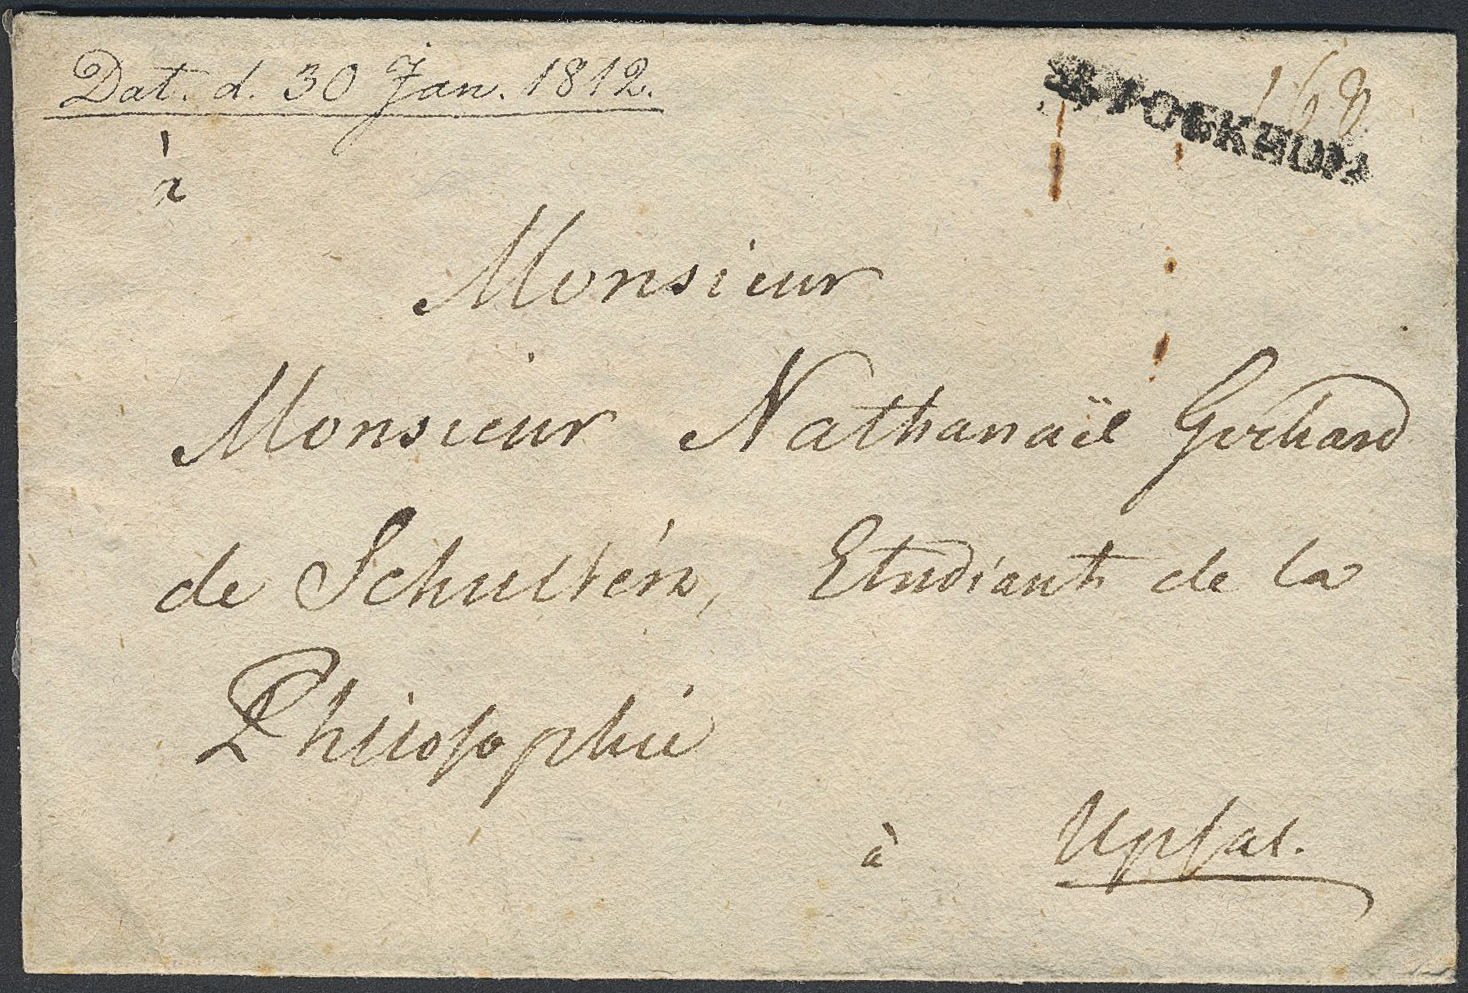 Dat. d. 30 Jan. 1812.
STOCKHOLM
168
à
Monsieur
Monsieur Nathanaël Gerhard
de Schultén, Etudiant de la
Philosophie
à Upsal.